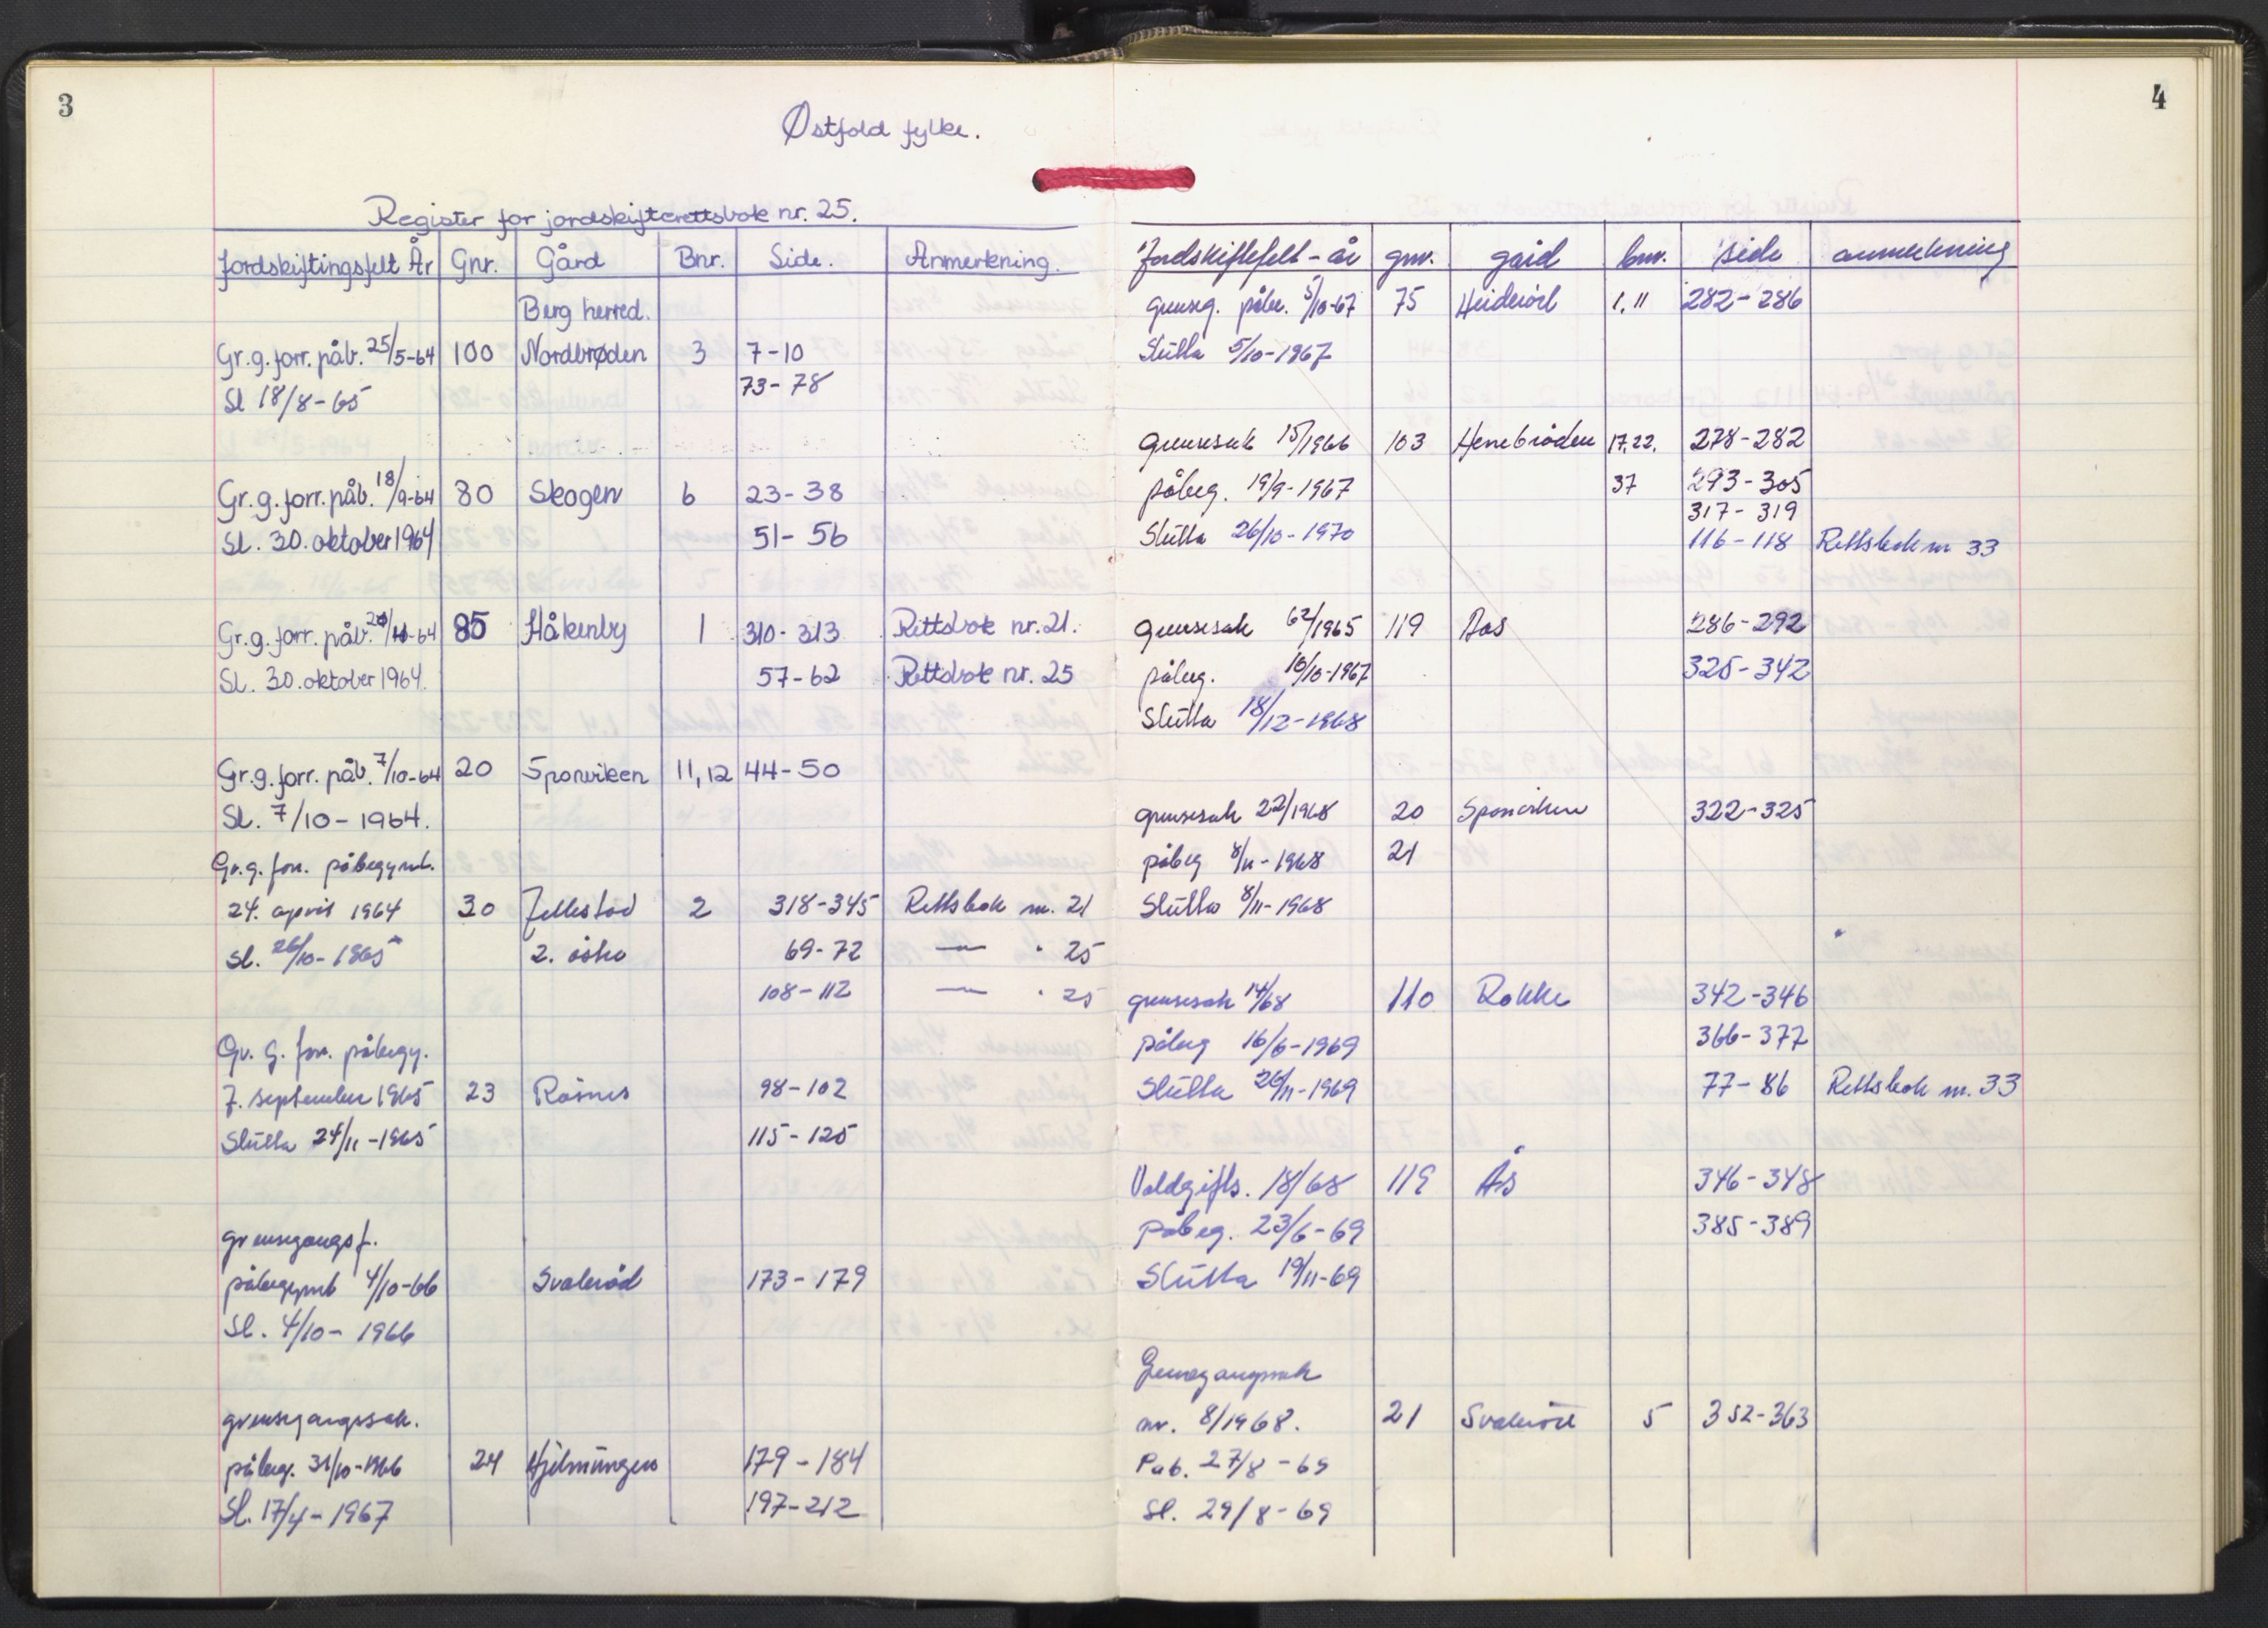 3
Østfold fylke.
Register for jordskifterettsbok nr. 25.
Jordskiftingsfelt År Gnr. Gård Bnr. Side. Anmerkning.
Berg herred.
Gr.g.forr. påb. 25/5-64 100 Nordbrøden 3 7-10
Sl 18/8-65 73-78
Gr.g.forr. påb. 18/9-64 80 Skogen 6 23-38
Sl. 30. oktober 1964 51-56
Gr.g.forr. påb. 85 Håkenby 1 310-313 Rettsbok nr. 21.
Sl. 30. oktober 1964. 57-62 Rettsbok nr. 25
Gr.g.forr. påb. 7/10-64 20 Sponviken 11,12 44-50
Sl. 7/10-1964.
Gr.g. forr. påbegynt.
24. april 1964 30 Jellestad 2 318-345 Rettsbok nr. 21
Sl. 26/10-1965 2. østre 69-72 — " 25
108-112 — " 25
Gr. g. forr. påbegy.
7. september 1965 23 Råsnes 98-102
Slutta 24/11-1965 115-125
grensegangsf.
påbegynt 4/10-66 Svalerød 173-179
Sl. 4/10-1966
grensegangssak.
påbeg. 31/10-1966 24 Hjelmungen 179-184
Sl. 17/4-1967 197-212
4
Jordskiftefelt - år gnr. gård bnr. side anmerkning
grenseg. påbe. 5/10-67 75 Heiderød 1,11 282-286
Slutta 5/10-1967
Grensesak 15/1966 103 Hennebråden 17,22, 278-282
påbeg. 19/9-1967 37 293-305
317-319
Slutta 26/10-1970 116-118 Rettsbok nr 33
Grensesak 62/1965 119 Aas 286-292
påbeg. 10/10-1967 325-342
Slutta 18/12-1968
grensesak 22/1968 20 Sponviken 322-325
påbeg 8/11-1968 21
Slutta 8/11-1968
grensesak 14/68 110 Rokke 342-346
påbeg 16/6-1969 366-377
Slutta 26/11-1969 77-86 Rettsbok nr. 33
Voldgifts. 18/68 119 Ås 346-348
påbeg. 23/6-69 385-389
Slutta 19/11-69
Grensegangssak
nr. 8/1968. 21 Svalerød 5 352-363
Påb. 27/8-69
Sl. 29/8-69